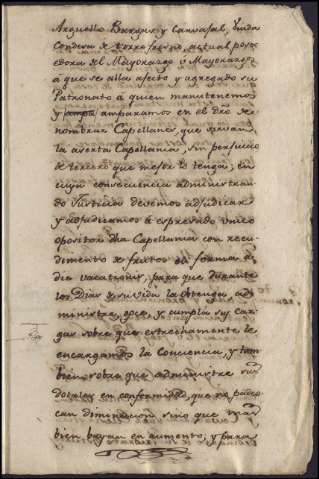 Arguello Burgos y Carvajal, viuda
Condesa de torre fresno, actual pose
edora del Mayorazgo, o Mayorazgos
á que se alla afecto y agregado su
Patronato á quien manutenemos
y amparamos en el dro de
nombrar Capellanes, que sirvan
la acerta Capellania sin perjuicio
de tercero que mejor lo tenga; en
cuya consecuencia administran
do Justicia devemos adjudicar
y adjudicamos á espresado unico
opositor dha Capellania con recu
dimiento de frutos en forma a
die vacationis, para que durante
los Dias de su vida la obtenga ad
ministre, goce, y cumpla sus car
gas sobre que estrechamente le
encargamos la Conciencia, y tam
bien sobre que administre sus
dotales en conformidad, que no padez
can diminucion sino que mas
bien bayan en aumento, y para